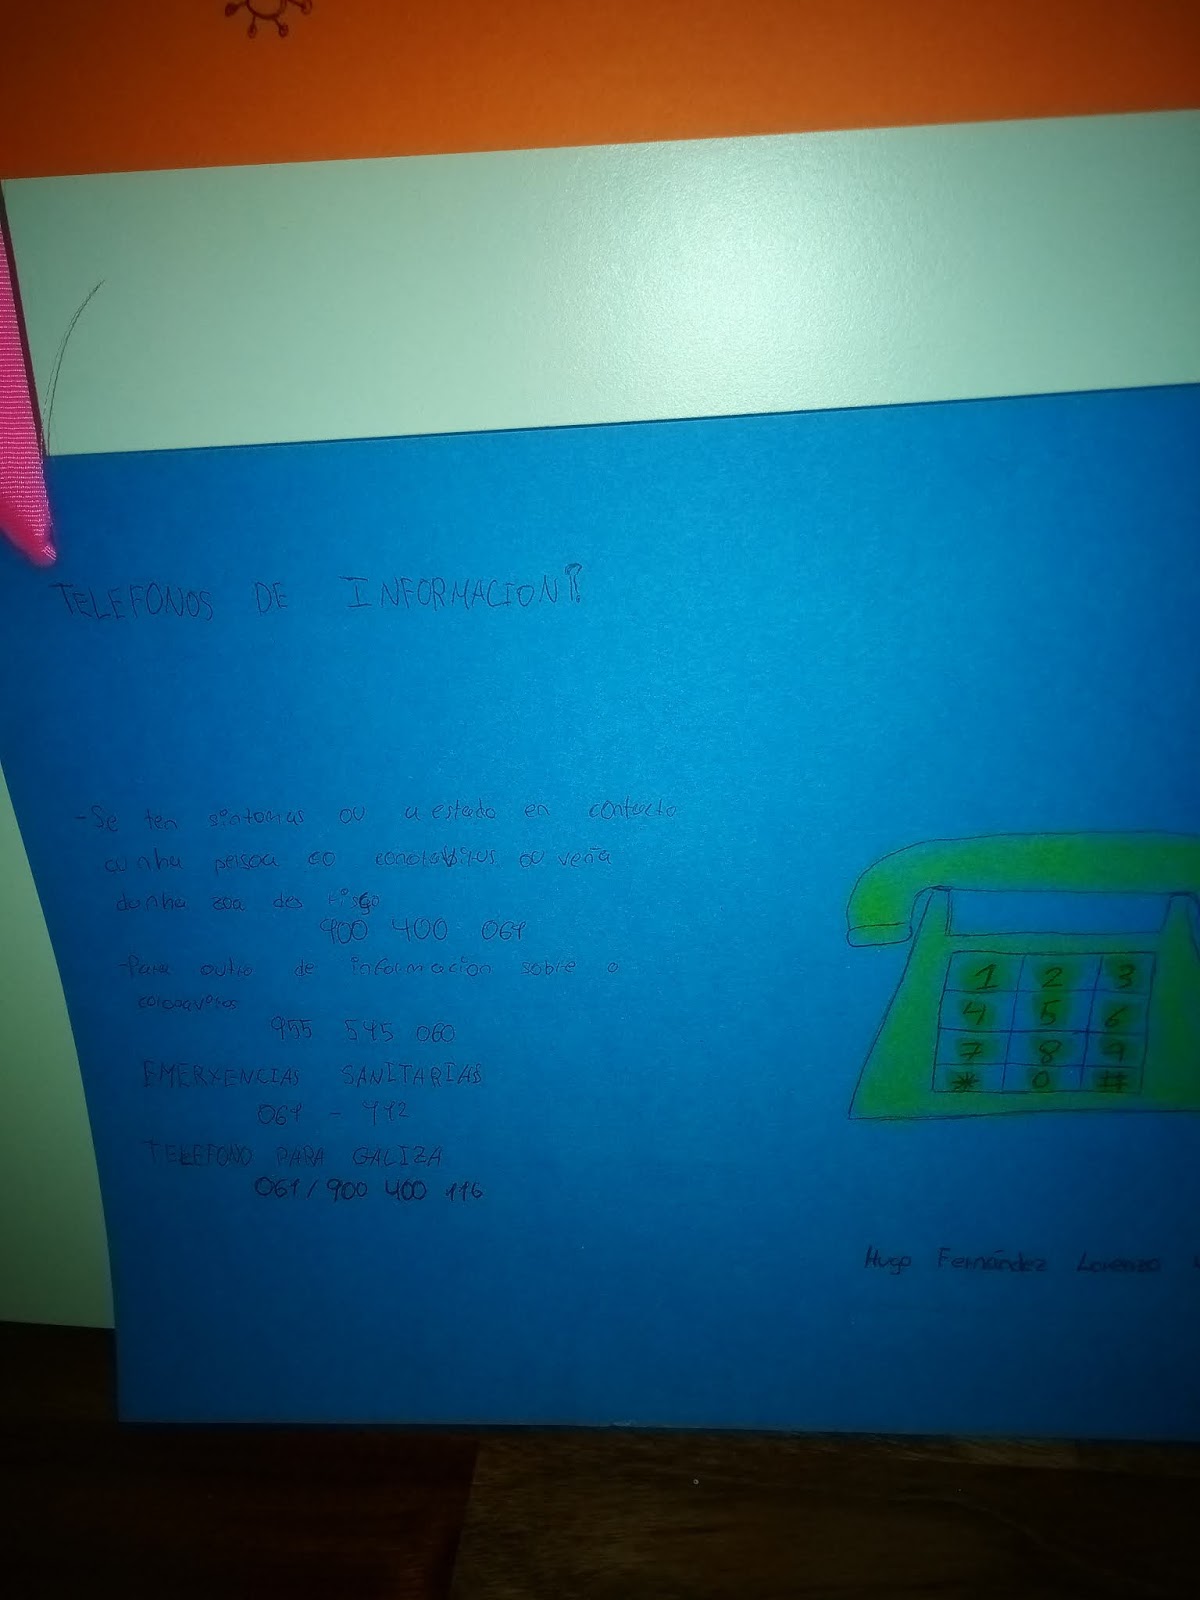 TELEFONOS DE INFORMACION!
-Se ten sintomas ou a estado en contacto
cunha persoa co conotavirus ou veña
dunha zoa des risgo
900 400 061
-Para outro de informacion sobre o
coronavirus
955 545 060
EMERXENCIAS SANITARIAS
061 - 112
TELEFONO PARA GALIZA
061 / 900 400 116
1 2 3
4 5 6
7 8 9
* 0 #
Hugo Fernández Lorenzo